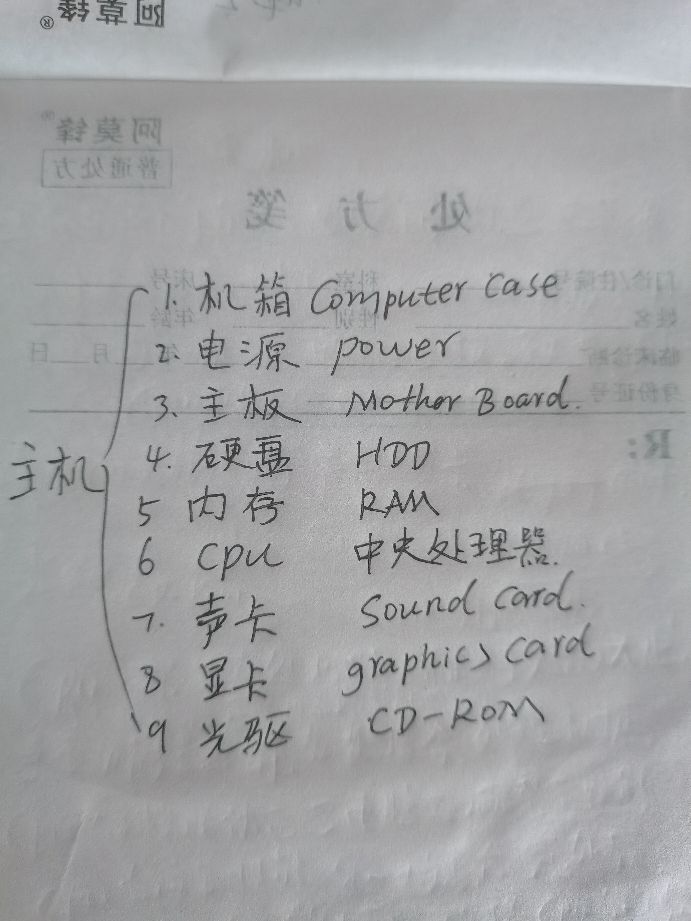 阿莫锋®
阿莫锋®
普通处方
处 方 笺
门诊/住院号 科室 床号
姓名 性别 年龄
临床诊断 年 月 日
身份证号
R:
主机
1. 机箱 Computer Case
2. 电源 power
3. 主板 Mother Board.
4. 硬盘 HDD
5 内存 RAM
6 CPU 中央处理器.
7. 声卡 Sound card.
8 显卡 graphics card
9 光驱 CD-ROM